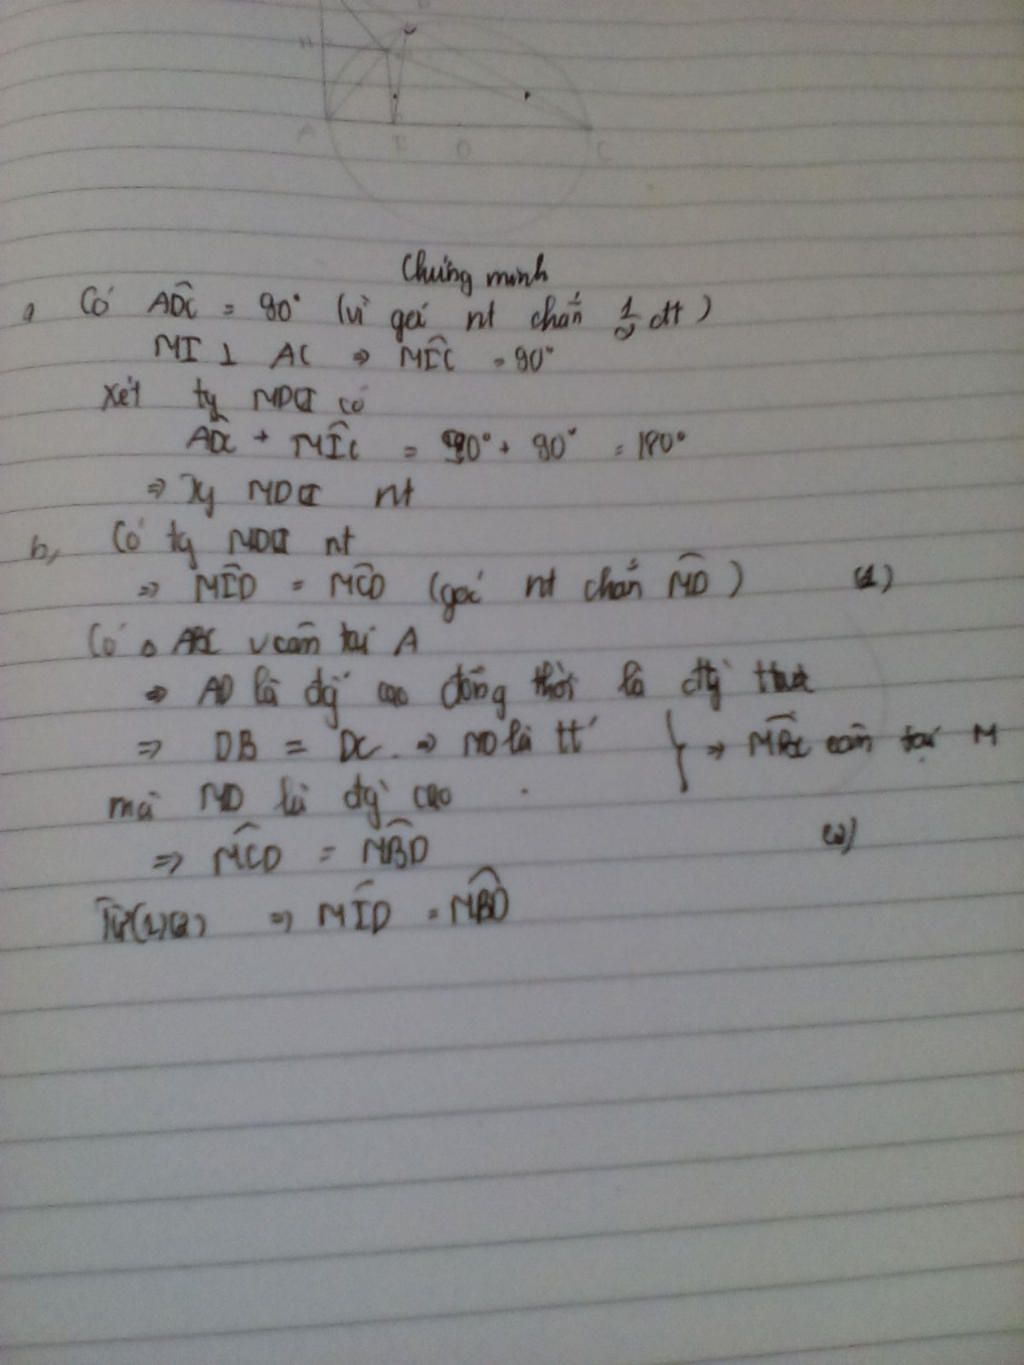 A
I
O
C
Chứng minh
a Có ADC = 90° (vì góc nt chắn 1/2 đtt)
MI ⊥ AC ⇒ MIC = 90°
Xét tg MDCI có
ADC + MIC = 90° + 90° = 180°
⇒ Tg MDCI nt
b, Có tg MDCI nt
⇒ MID = MCD (góc nt chắn MD) (1)
Có △ ABC v cân tại A
⇒ AD là đg cao đồng thời là đg
⇒ DB = DC ⇒ MD là tt } ⇒ MBC cân tại M
mà MD là đg cao
⇒ MCD = MBD (2)
Từ (1)(2) ⇒ MID = MBD